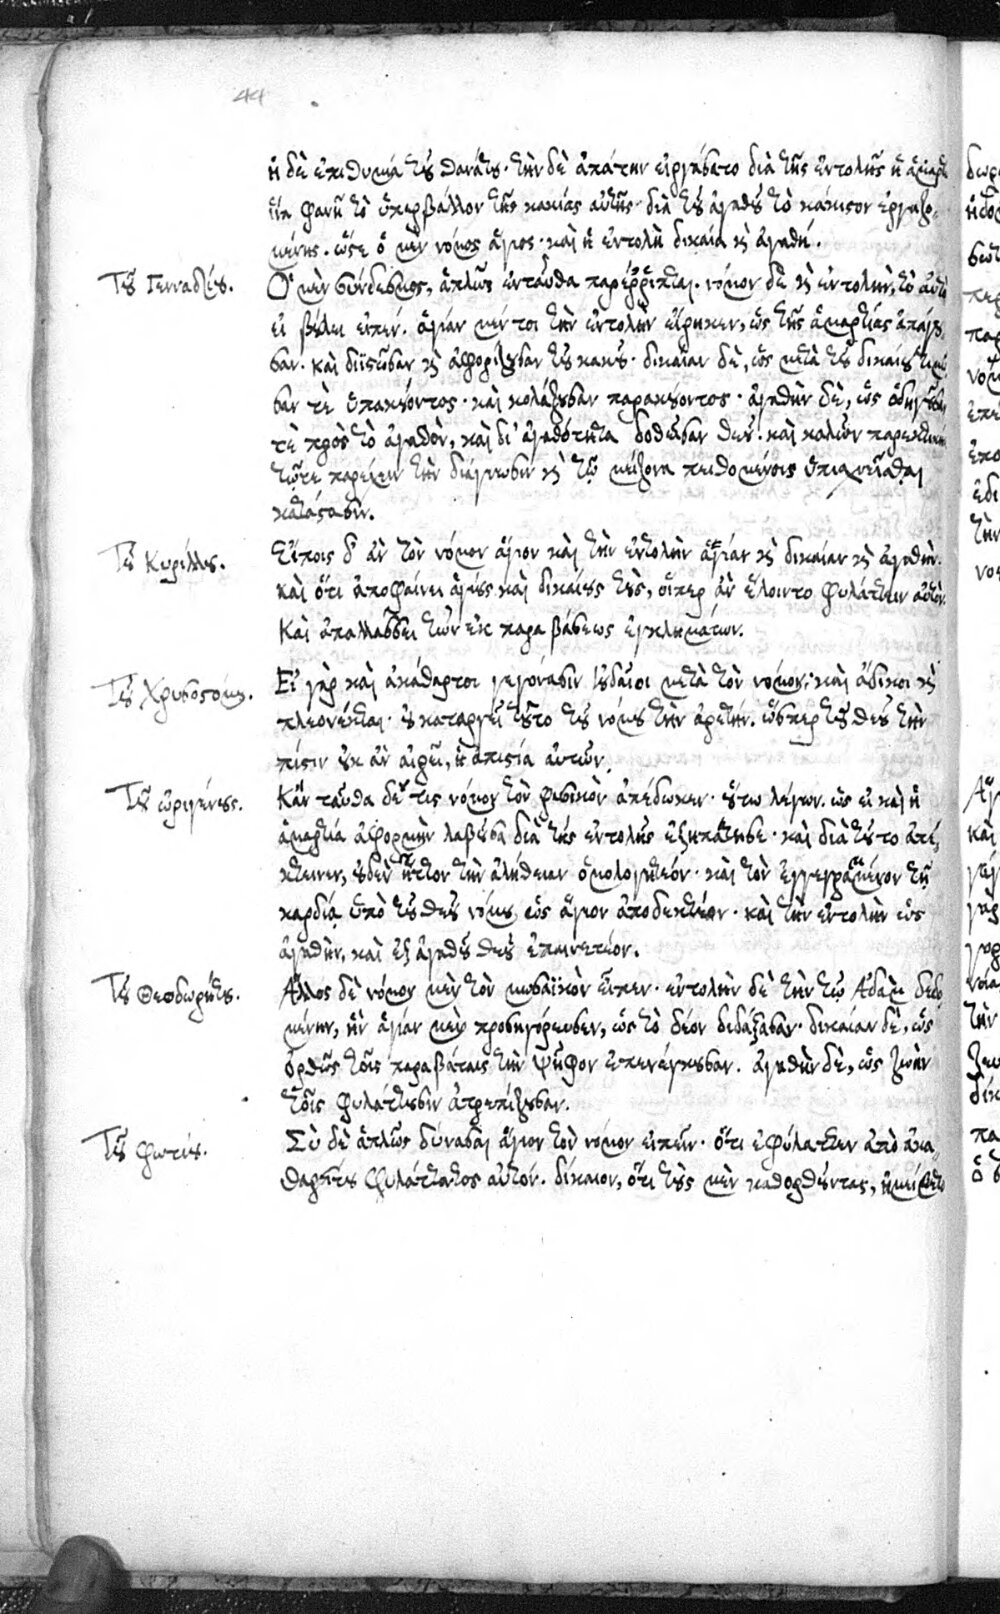 44
ἡ δὲ ἐπιθυμία τοῦ θανάτου· τὴν δὲ ἀπάτην εἰργάσατο διὰ τῆς ἐντολῆς ἡ ἁμαρ
τία φανῇ τὸ ὑπερβάλλον τῆς κακίας αὐτῆς· διὰ τοῦ ἀγαθοῦ τὸ κάκιστον ἐργαζο
μένης. ὥστε ὁ μὲν νόμος ἅγιος· καὶ ἡ ἐντολὴ δικαία καὶ ἀγαθή.
Τοῦ Γενναδίου. Ὁ μὲν σύνδεσμος, ἁπλῶς ἐντάυθα παρέρριπται. νόμον δὲ καὶ ἐντολὴν, τὸ αὐτὸ
εἰ βούλει εἰπεῖν. ἁγίαν μέν τοι τὴν ἐντολὴν εἴρηκεν, ὡς τῆς ἁμαρτίας ἀπάγου
σαν. καὶ διϊστῶσαν καὶ ἀφορίζουσαν τοῦ κακοῦ· δικαίαν δὲ, ὡς μετὰ τοῦ δικαίου τιμῶ
σαν τὲ ὑπακούοντος· καὶ κολάζουσαν παρακούοντος· ἀγαθὴν δὲ, ὡς ὁδηγοῦσαν
τὲ πρὸς τὸ ἀγαθὸν, καὶ δι' ἀγαθότητα δοθεῖσαν θεοῦ· καὶ καλῶν παρεκτικὴν
τῶτε παρέχειν τὴν διάγνωσιν καὶ τῷ μείζονα πειθομένοις ὑπισχνεῖσθαι
κατάστασιν.
Τοῦ Κυρίλλου. Εἴποις δ' ἂν τὸν νόμον ἅγιον καὶ τὴν ἐντολὴν ἁγίαν καὶ δικαίαν καὶ ἀγαθὴν.
καὶ ὅτι ἀποφαίνει ἁγίους καὶ δικαίους τοὺς, οἵπερ ἂν ἕλοιντο φυλάττειν αὐτὸν.
καὶ ἀπαλλάσσει τῶν ἐκ παραβάσεως ἐγκλημάτων.
Τοῦ Χρυσοστόμου. Εἰ γὰρ καὶ ἀκάθαρτοι γεγόνασιν Ἰουδαῖοι μετὰ τὸν νόμον· καὶ ἄδικοι καὶ
πλεονέκται· οὐ καταργεῖ τοῦτο τοῦ νόμου τὴν ἀρετήν. ὥσπερ τοῦ θεοῦ τὴν
πίστιν οὐκ ἂν αἱρεῖ, ἡ ἀπιστία αὐτῶν.
Τοῦ ὠριγένους. Κἂν ταῦθα δέ τις νόμον τὸν φυσικὸν ἀπέδωκεν· οὕτω λέγων. ὡς εἰ καὶ ἡ
ἁμαρτία ἀφορμὴν λαβοῦσα διὰ τῆς ἐντολῆς ἐξηπάτησε· καὶ διὰ τοῦτο ἀπέ
κτεινεν, οὐδὲν ἧττον τὴν ἀλήθειαν ὁμολογητέον· καὶ τὸν ἐγγεγραμμένον τῇ
καρδίᾳ ὑπὸ τοῦ θεοῦ νόμου, ὡς ἅγιον ἀποδεκτέον· καὶ τὴν ἐντολὴν ὡς
ἀγαθὴν, καὶ ἐξ ἀγαθοῦ θεοῦ ἐπαινετέον.
Τοῦ Θεοδωρήτου. Ἄλλος δὲ νόμον μὲν τὸν μωσαϊκὸν εἶπεν· ἐντολὴν δὲ τὴν τῷ Ἀδὰμ δεδο
μένην, ἣν ἁγίαν μὲν προσηγόρευσεν, ὡς τὸ δέον διδάξασαν· δικαίαν δὲ, ὡς
ὀρθῶς τοῖς παραβάταις τὴν ψῆφον ἐπενέγκουσαν. ἀγαθὴν δὲ, ὡς ζωὴν
τοῖς φυλάττουσιν εὐτρεπίζουσαν.
Τοῦ Φωτίου. Σὺ δὲ ἁπλῶς δύνασαι ἅγιον τὸν νόμον εἰπεῖν· ὅτι ἐφύλαττεν ἀπὸ ἀκα
θαρσίας φυλάττοντας αὐτόν. δίκαιον, ὅτι τοὺς μὲν κατορθοῦντας, ἠμείβετο